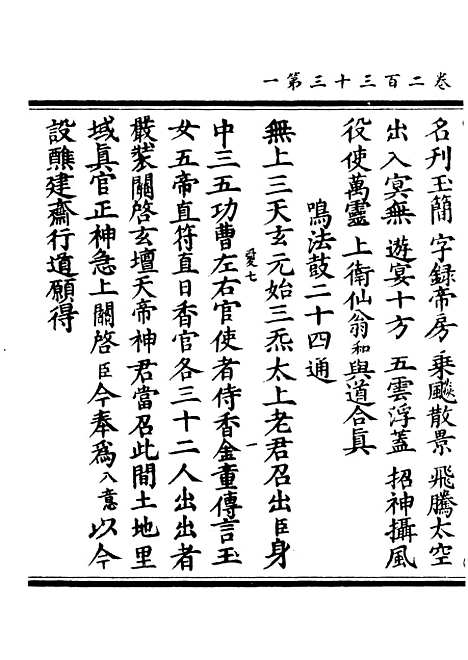 卷二百三十三第一
名刋玉簡 字録帝房 乘飈散景 飛騰太空
出入冥無 遊宴十方 五雲浮蓋 招神攝風
役使萬靈 上衛仙翁和與道合眞
鳴法鼓二十四通
無上三天玄元始三炁太上老君召出臣身
中三五功曹左右官使者侍香金童傳言玉
女五帝直符直日香官各三十二人出出者
嚴裝關啓玄壇天帝神君當召此間土地里
域眞官正神急上關啓臣今奉爲入意以今
設醮建齋行道願得
愛七
一